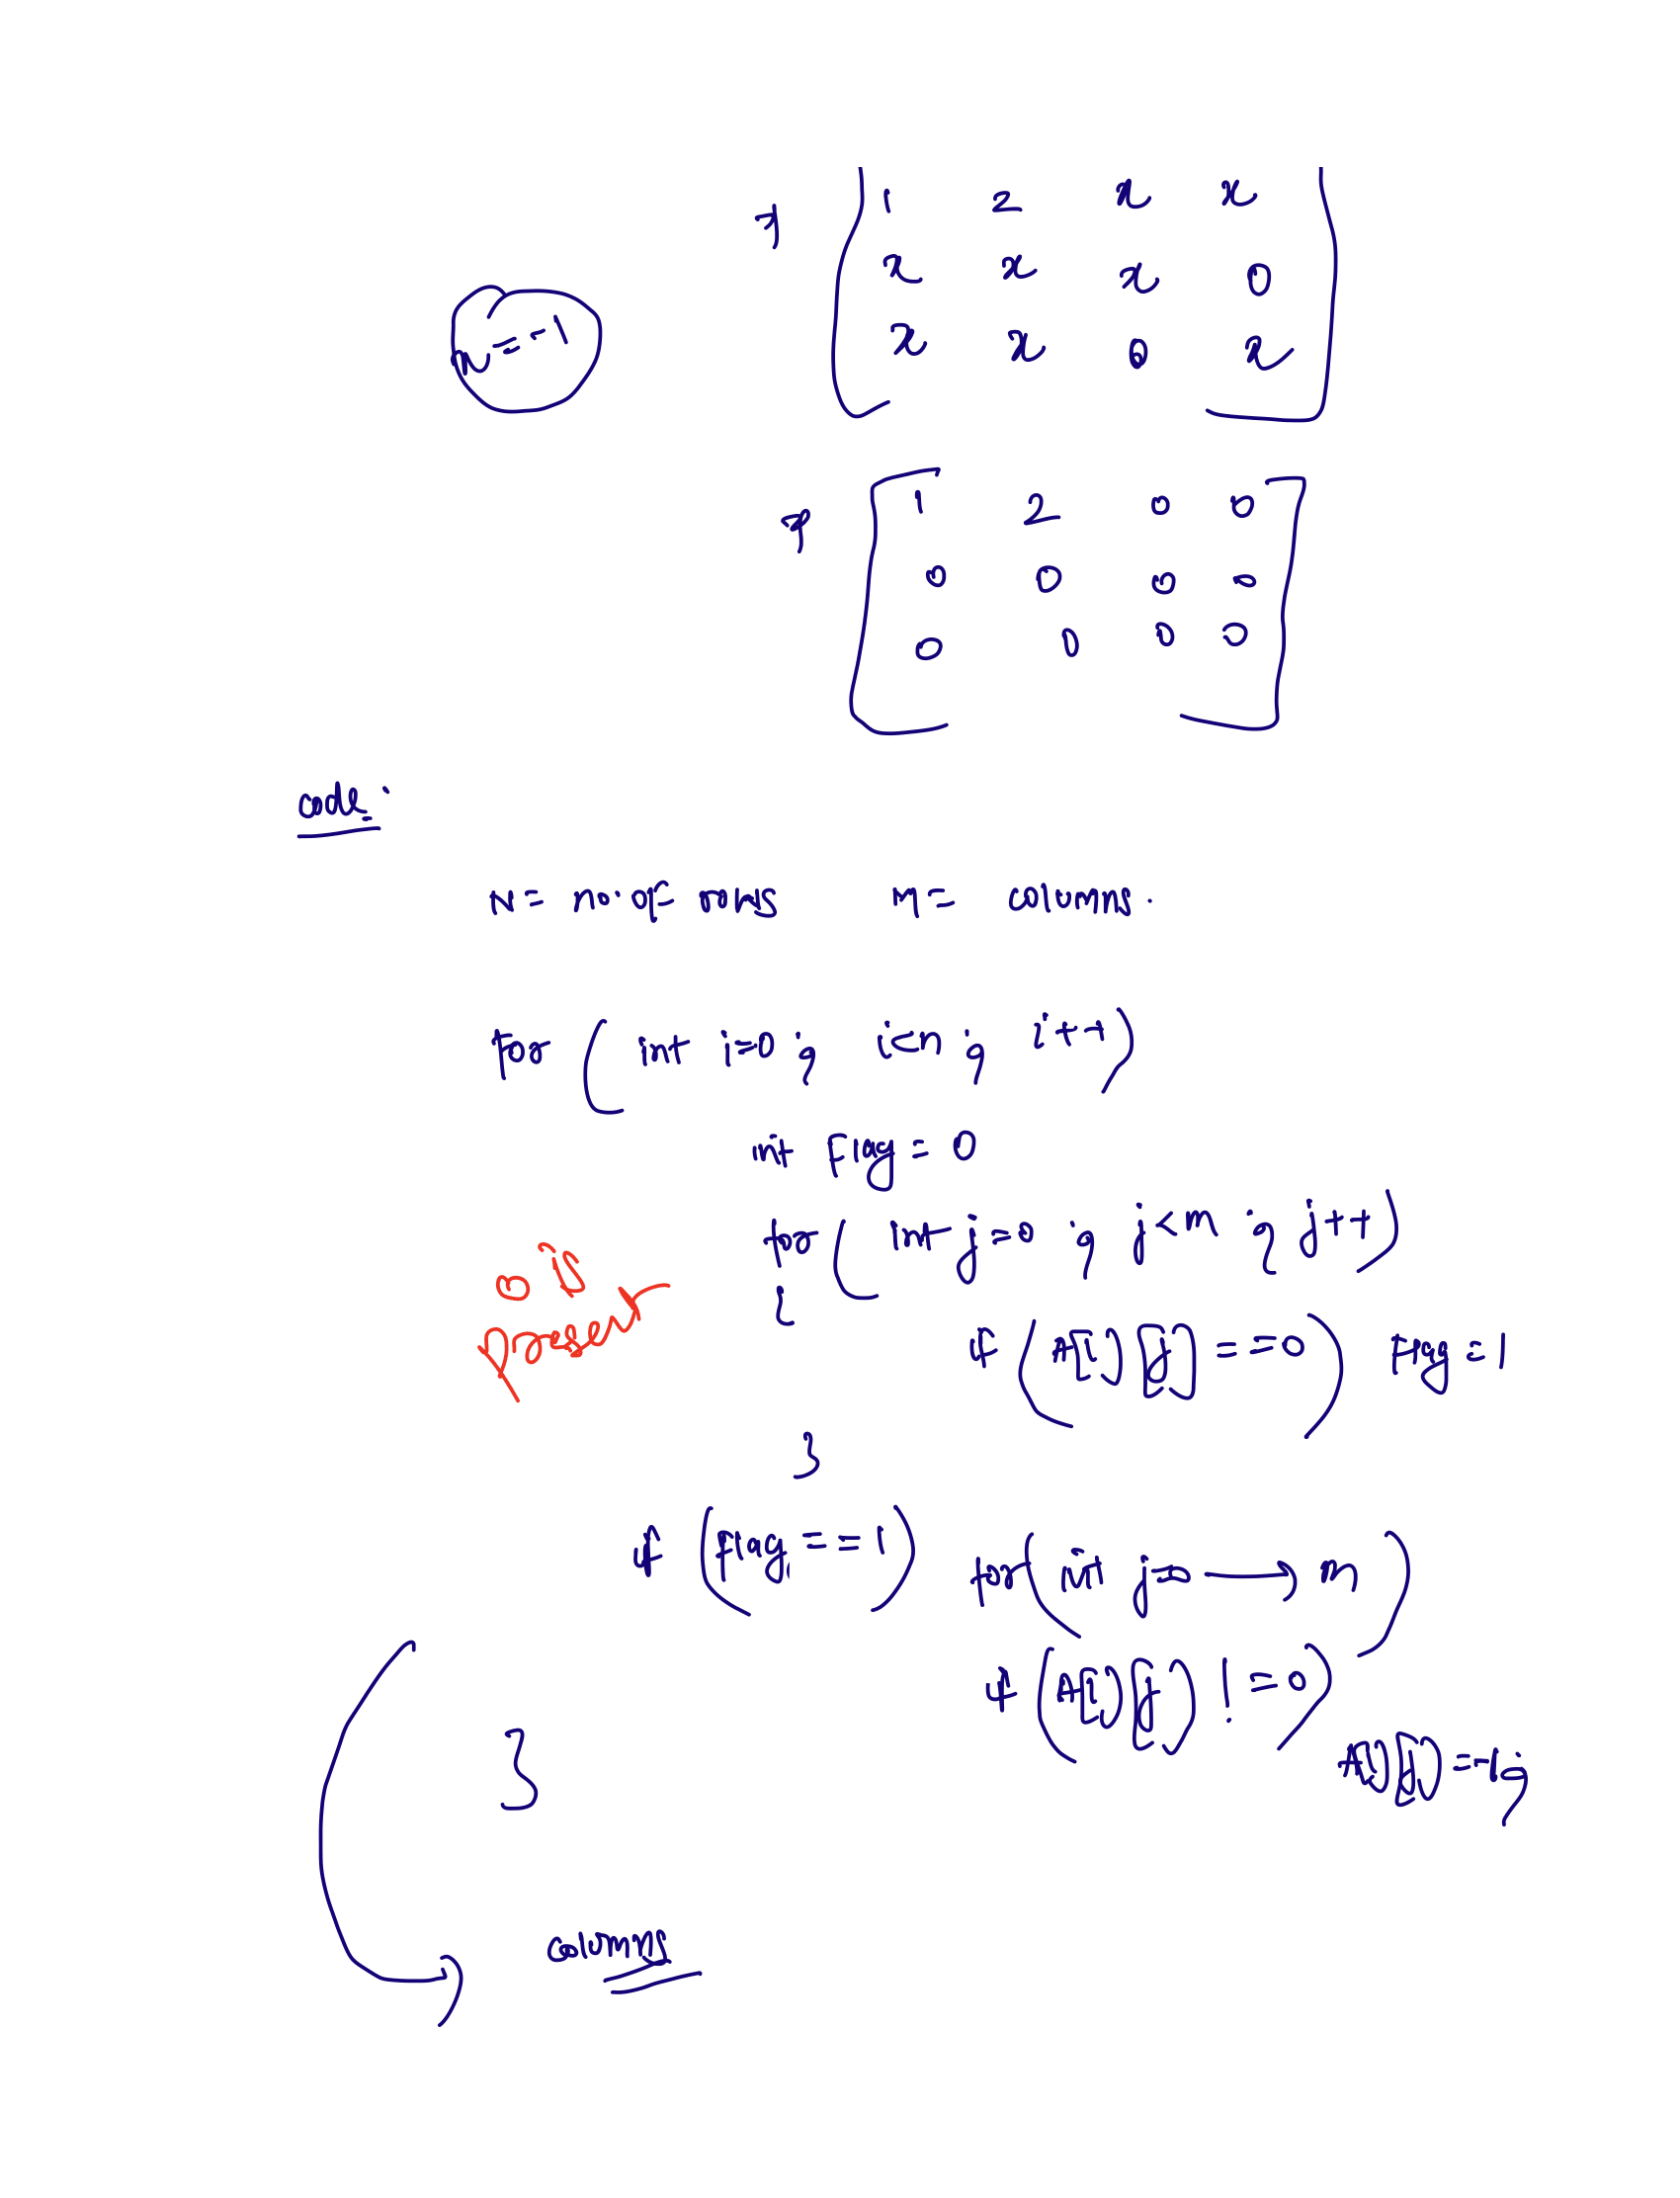 1 2 x x
x x x 0
x = -1
x x 0 x
1 2 0 0
0 0 0 0
0 0 0 0
code:
N = no. of rows M = columns.
for ( int i=0 ; i<n ; i++ )
int flag = 0
for ( int j=0 ; j<m ; j++ )
{
0 is
present
if ( A[i][j] == 0 ) flag = 1
}
if ( flag == 1 ) for ( int j=0 → m )
if ( A[i][j] != 0 )
A[i][j] = -1;
}
columns